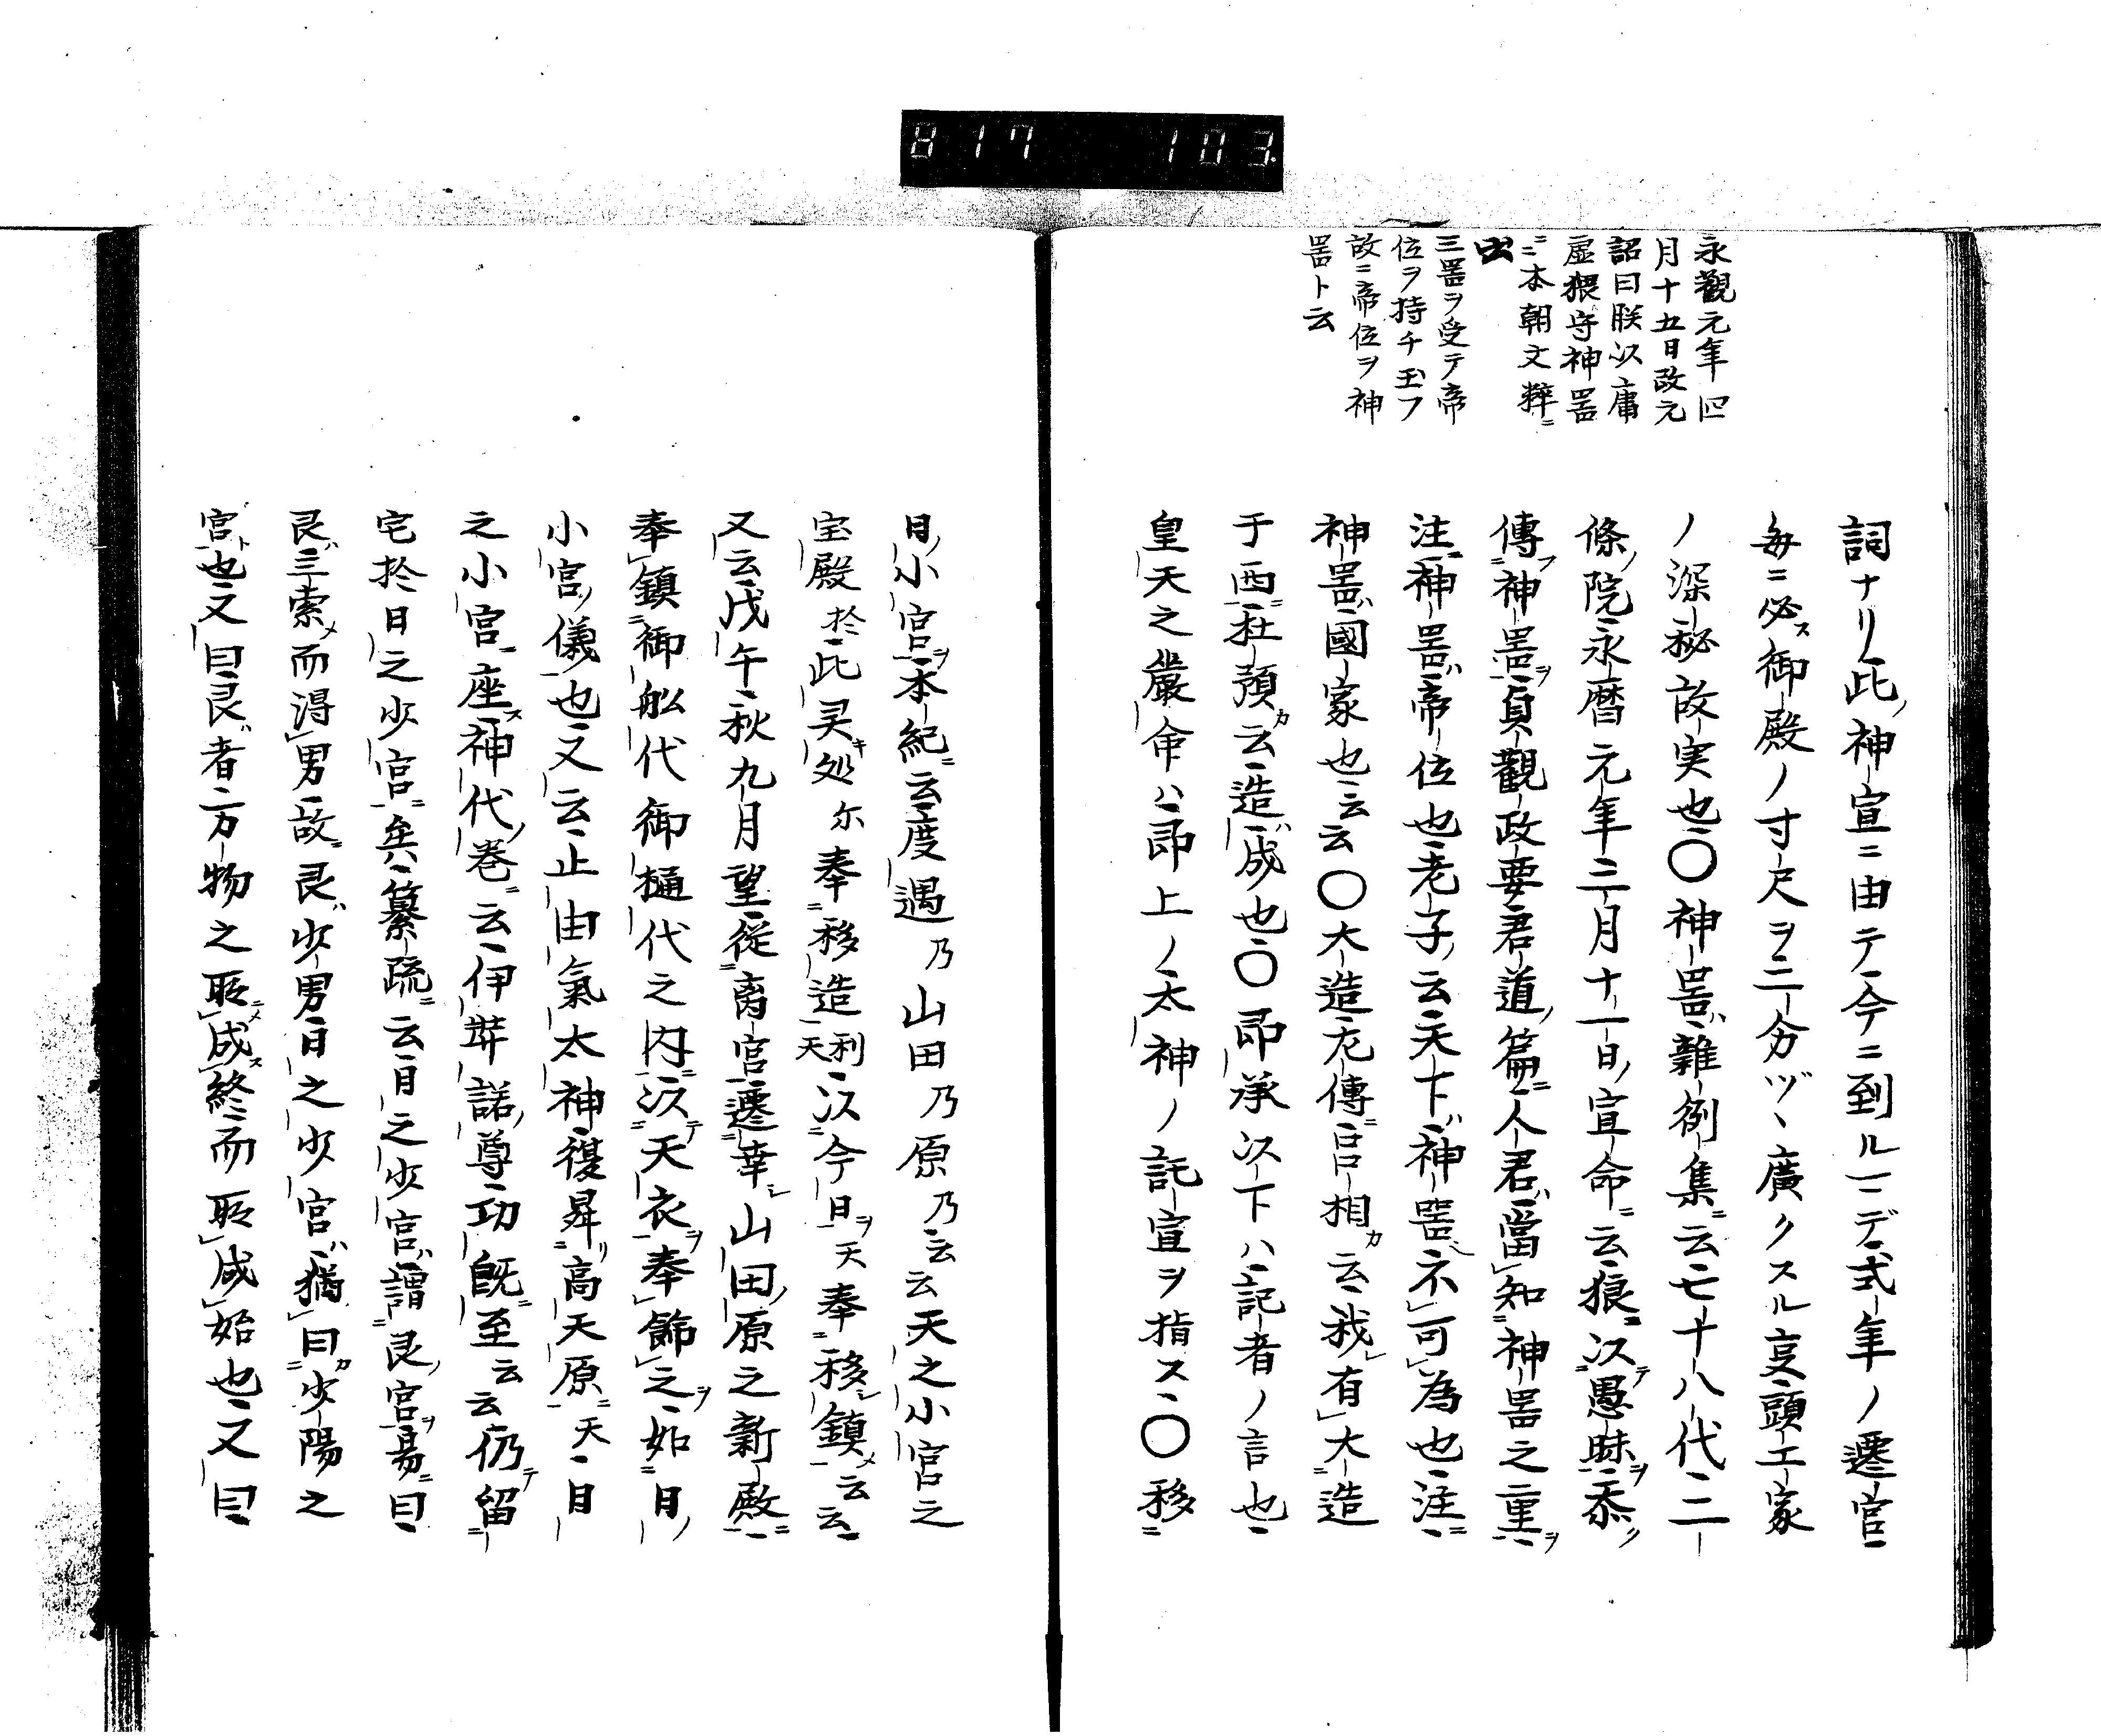 817 103.
永觀元年四
月十五日改元
詔曰朕以庸
虛猥守神噐
ニ本朝文粹ニ
出
三噐ヲ受テ帝
位ヲ持チ玉フ
故ニ帝位ヲ神
噐ト云
詞ナリ此ノ神宣ニ由テ今ニ到ルマデ式年ノ遷宮
每ニ必ス御殿ノ寸尺ヲ二分ヅヽ廣クスル亊頭工家
ノ深秘故実也〇神噐ハ雜例集ニ云七十八代二
條ノ院永暦元年三月十一日ノ宣命ニ云狼以テ愚昧ヲ忝ク
傳フ神噐ヲ貞觀政要君道ノ篇ニ人君ハ當知ニ神噐之重ヲ
注ニ神噐ハ帝位也老子ノ云天下ハ神噐不可為也注ニ
神噐ハ國家也云云〇大造尤傳ニ呂相カ云我有大造
于西ニ杜預カ云造ハ成也〇即承以下ハ記者ノ言也
皇天之嚴命ハ即上ノ太神ノ託宣ヲ指ス〇移ニ
日ノ小宮ヲ本紀ニ云度遇乃山田乃原乃云云天之小宮之
宝殿於此灵キ処尓奉移造利天以今日ヲ天奉移シ鎮メ云云
又云戊午秋九月望從離宮遷幸シ山田ノ原之新殿ニ
奉鎮御舩代御樋代之内ニ以テ天衣ヲ奉飾之ヲ如日ノ
小宮ノ儀也又云止由氣太神復昇リ高天原ニ天日
之小宮ニ座ス神代ノ卷ニ云伊弉諾ノ尊功既ニ至云云仍テ留
宅於日之少宮ニ矣纂疏ニ云日之少宮ハ謂艮ノ宮ヲ易ニ曰
艮ハ三索メ而得男故艮ハ少男日之少宮ハ猶曰カ少陽之
宮ト也又曰艮ハ者万物之所ニメ成ス終而所成始也又曰